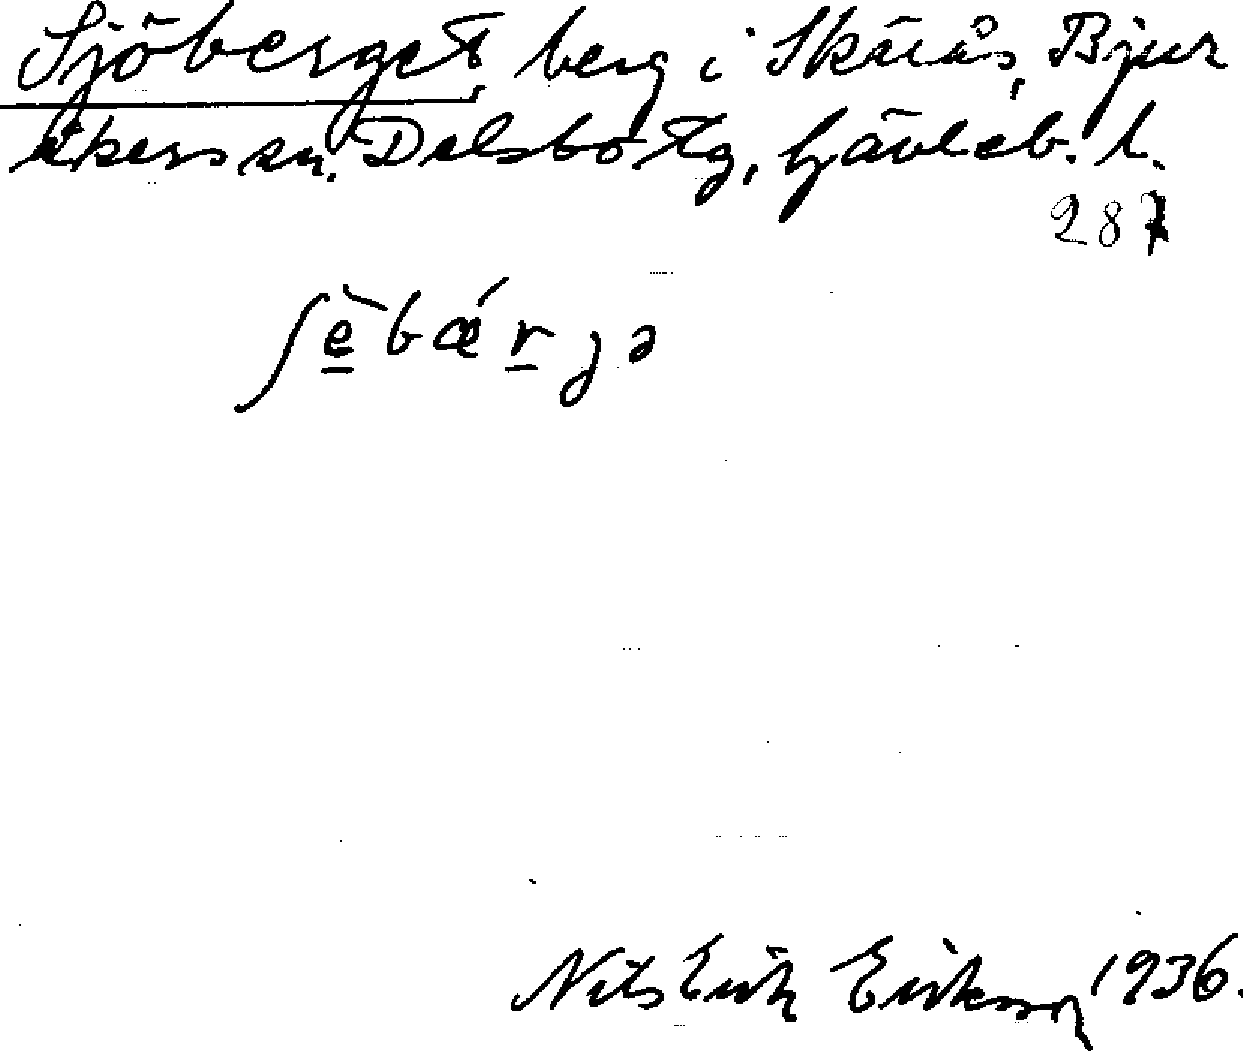 Sjöberget, berg i Skärås, Bjur
åkers sn. Delsbo tg, Gävleb. l.
287
ʃè̱bǽṟjə
Nils Erik Eriksson 1936.